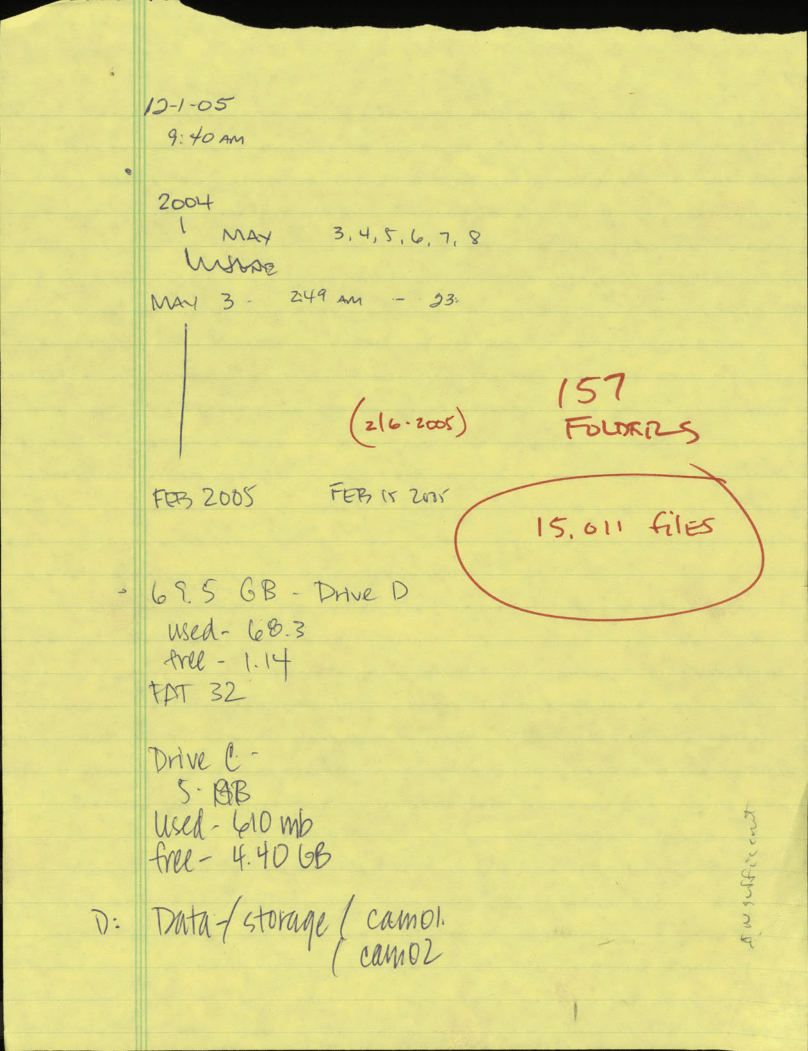 12-1-05
9:40 AM
2004
MAY 3, 4, 5, 6, 7, 8
MAY 3 - 2:49 AM - 23:
157
(2/6-2005) FOLDERS
FEB 2005 FEB 15 2005
15,011 files
69.5 GB - Drive D
used- 68.3
free - 1.14
FAT 32
Drive C -
5. GB
used- 610 mb
free- 4.40 GB
D: Data-/storage / cam01.
/ cam02